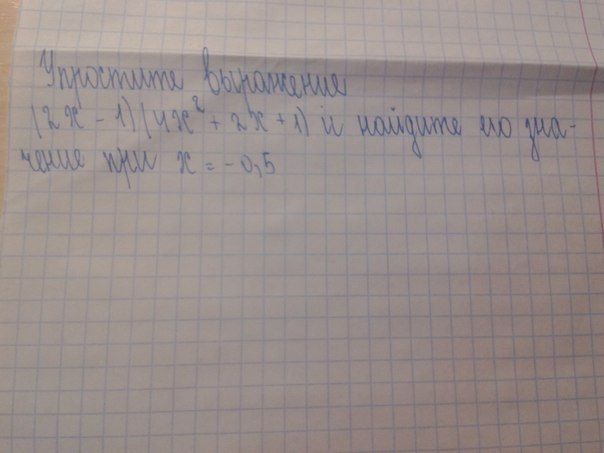 Упростите выражение
(2x - 1)(4x² + 2x + 1) и найдите его зна-
чение при x = -0,5